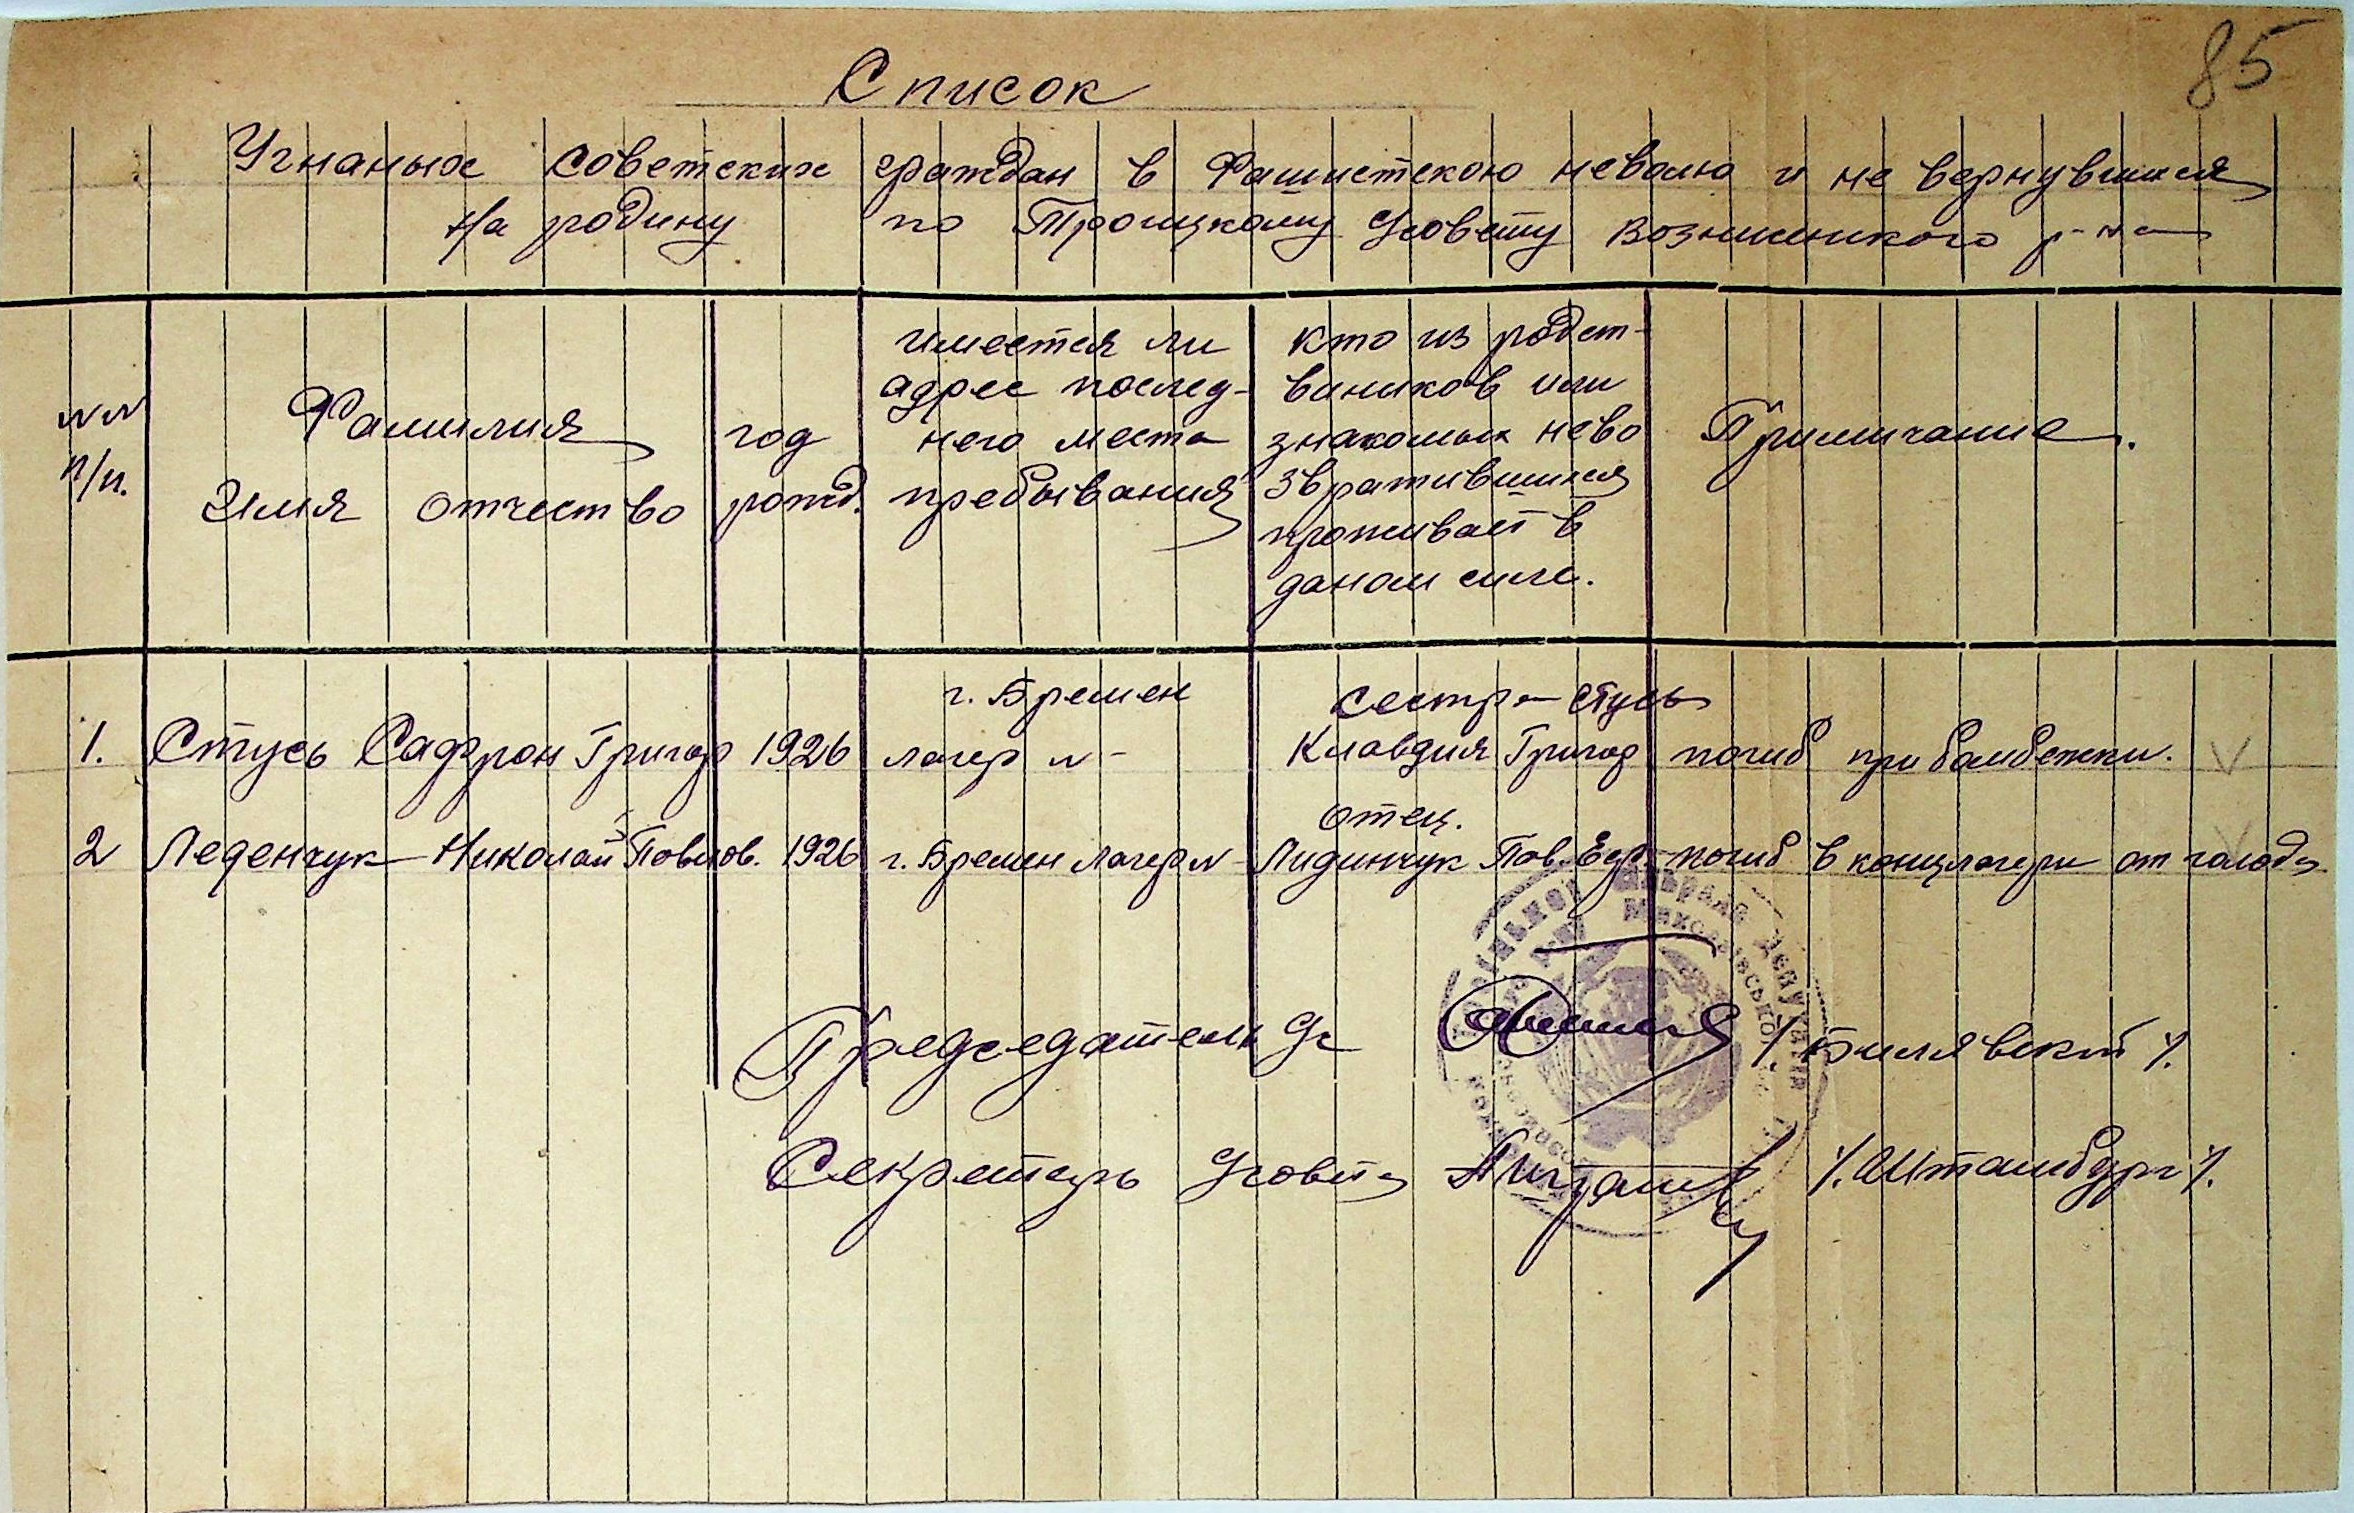 85
Список
Угнаных советских граждан в Фашистскою неволю и не вернувшихся
На родину по Троицкому с/совету Вознисенского р-на
NN п/п.
Фамилия
Имя отчество
год
рожд.
имеется ли
адрес послед-
него места
пребывания
кто из родст-
виников или
знакомых нево
звратившихся
проживает в
даном селе.
Примичание.
г. Бремен сестра Стусь
1. Стусь Сафрон Григор 1926 лагер N- Клавдия Григор погиб при бомбежки. V
отец.
2 Леденчук Николай Повлов. 1926 г. Бремен лагер N- Лидинчук Пов. погиб в концлагери от голода V
Председатель Сс /. Билявский /.
Секретарь с/совета /. Штамбург /.